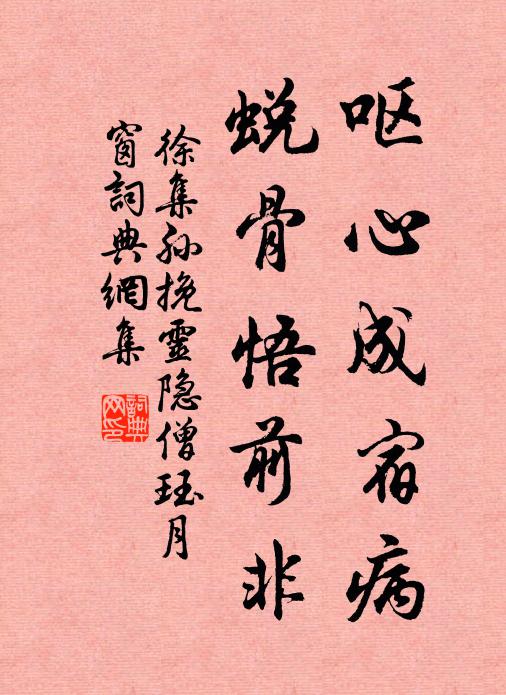 呕心成宿病
蜕骨悟前非
徐集孙挽靈隐僧珏月
窗詞典網集
詞典网印